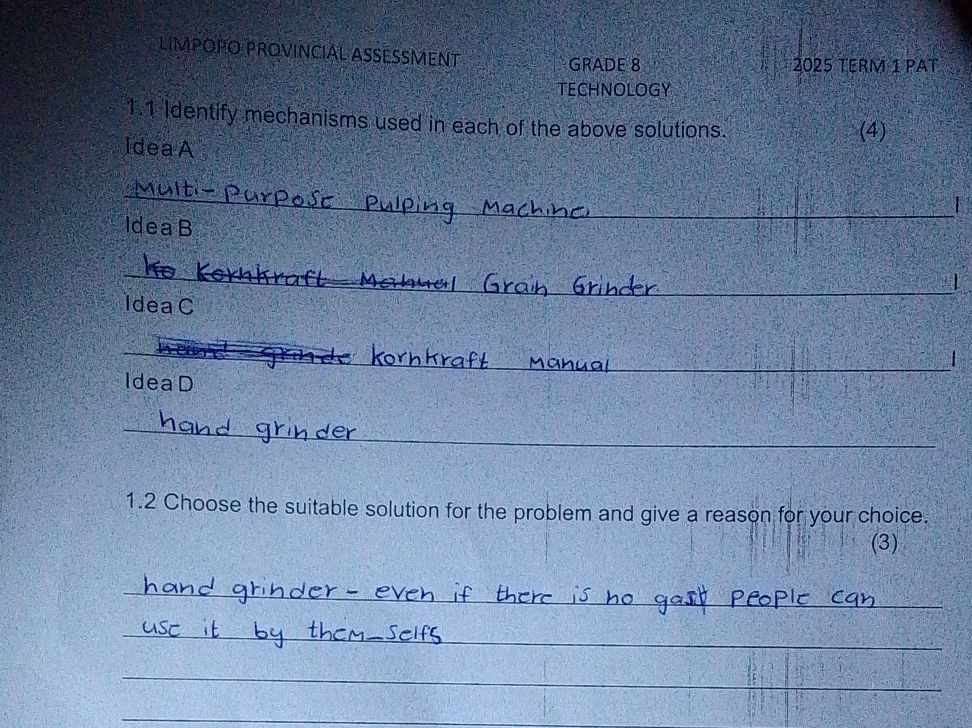 LIMPOPO PROVINCIAL ASSESSMENT GRADE 8 2025 TERM 1 PAT
TECHNOLOGY
1.1 Identify mechanisms used in each of the above solutions. (4)
Idea A
Multi-Purpose Pulping Machine
Idea B
Ko Kornkraft Manual Grain Grinder
Idea C
hand grinde kornkraft Manual
Idea D
hand grinder
1.2 Choose the suitable solution for the problem and give a reason for your choice.
(3)
hand grinder - even if there is no people can
use it by them-selfs